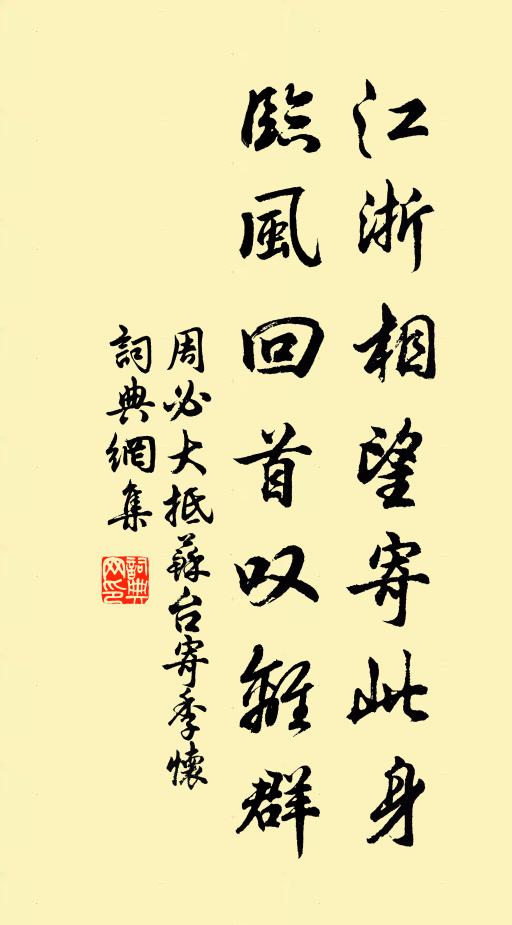 江浙相望寄此身
臨風回首叹離群
周必大抵蘇台寄季懷
詞典網集
詞典网印